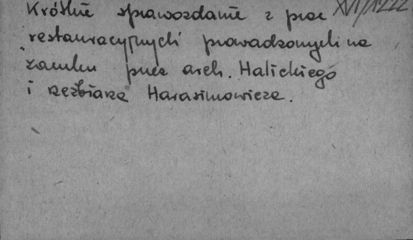 Krótkie sprawozdanie z prac XVI/1222
restauracyjnych prowadzonych na
zamku przez arch. Halickiego
i rzeźbiarza Harasimowicza.